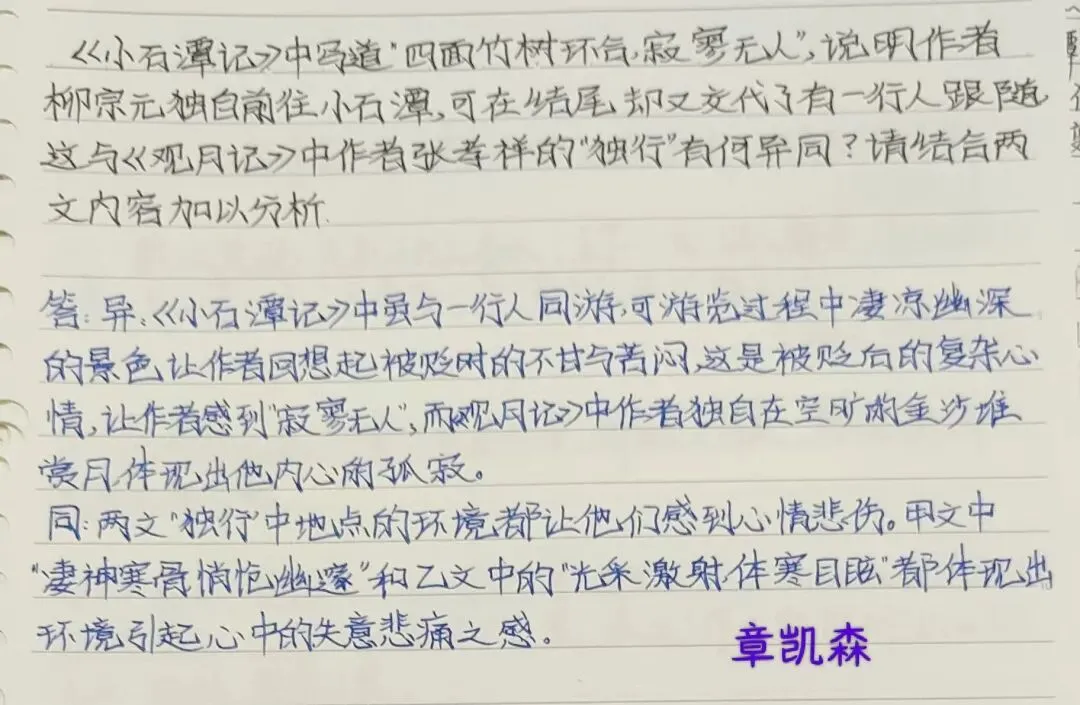 《小石潭记》中写道“四面竹树环合,寂寥无人”,说明作者
柳宗元独自前往小石潭,可在结尾却又交代了有一行人跟随,
这与《观月记》中作者张孝祥的“独行”有何异同?请结合两
文内容加以分析.
答:异:《小石潭记》中虽与一行人同游,可游览过程中凄凉幽深
的景色让作者回想起被贬时的不甘与苦闷,这是被贬后的复杂心
情,让作者感到“寂寥无人”,而《观月记》中作者独自在空旷的金沙堆
赏月,体现出他内心的孤寂。
同:两文“独行”中地点的环境都让他们感到心情悲伤。甲文中
“凄神寒骨悄怆幽邃”和乙文中的“光采激射,体寒目眩”都体现出
环境引起心中的失意悲痛之感。
章凯森